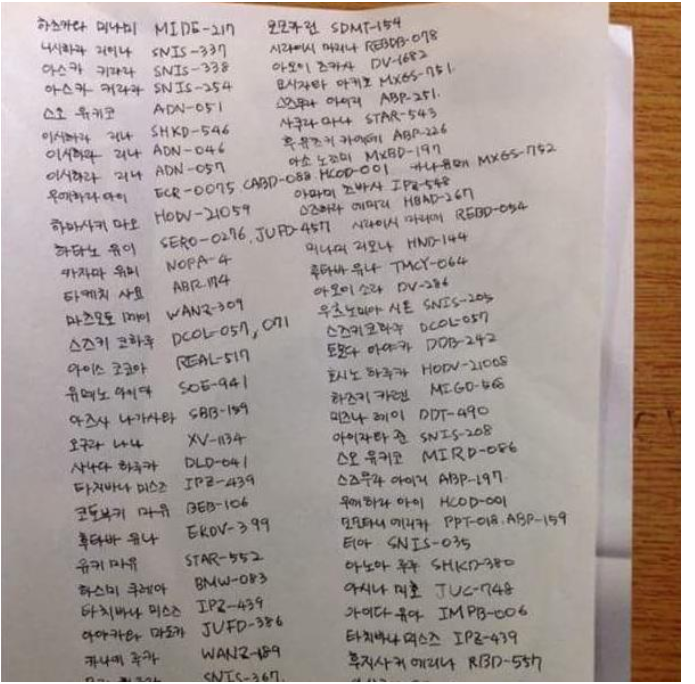 하즈키라 미나미 MIDE-217
니시하라 리이나 SNIS-337
아스카 키라라 SNIS-338
아스카 키라라 SNIS-254
스오 유키코 ADN-051
이시하라 리나 SHKD-546
이시하라 리나 ADN-046
이시하라 리나 ADN-057
우에하라 아이 ECR-0075, CABD-088, HCOD-001
하마사키 마오 HODV-21059
하타노 유이 SERO-0276, JUFD-457
카자마 유미 NOPA-4
타케치 사요 ABP-174
마츠모토 메이 WANZ-309
스즈키 코하루 DCOL-057, 071
아이스 코코아 REAL-517
유메노 아이카 SOE-941
아즈사 나가사와 SBB-159
오구라 나나 XV-1134
사나다 하루카 DLD-041
타치바나 미스즈 IPZ-439
코토부키 마유 BEB-106
후타바 유나 EKDV-399
유키 마유 STAR-552
하스미 쿠레아 BMW-083
타치바나 미스즈 IPZ-439
아야카와 마도카 JUFD-386
카나에 루카 WANZ-189
SNIS-367.
모모카 린 SDMT-159
시라이시 마리나 REBDB-078
아오이 츠카사 DV-1682
요시자와 아키호 MXGS-751.
스즈무라 아이리 ABP-251.
사쿠라 마나 STAR-543
후유츠키 카에데 ABP-226
아소 노조미 MXBD-197 카나 유메 MXGS-752
아마미 츠바사 IPZ-548
스즈하라 에미리 HBAD-267
시라이시 마리에 REBD-054
미나미 리오나 HND-144
후타바 유나 TMCY-064
아오이 소라 DV-286
우츠노미야 시온 SNIS-205
스즈키 코하루 DCOL-057
토모다 아야카 DDB-242
호시노 하루카 HODV-21008
하즈키 카렌 MIGD-468
미즈나 레이 DDT-490
아이자와 준 SNIS-208
스오 유키코 MIRD-086
스즈무라 아이리 ABP-197.
우에하라 아이 HCOD-001
모모타니 에리카 PPT-018. ABP-159
티아 SNIS-035
아노아 루루 SHKD-380
아시나 미호 JUC-748
가이다 유아 IMPB-006
타치바나 미스즈 IPZ-439
후지사키 에리나 RBD-557